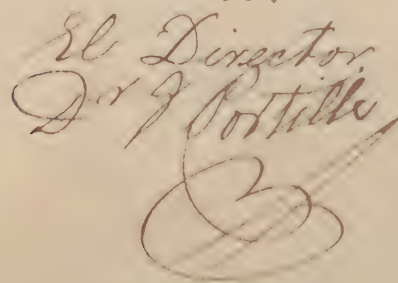 El Director
Dr J Portillo